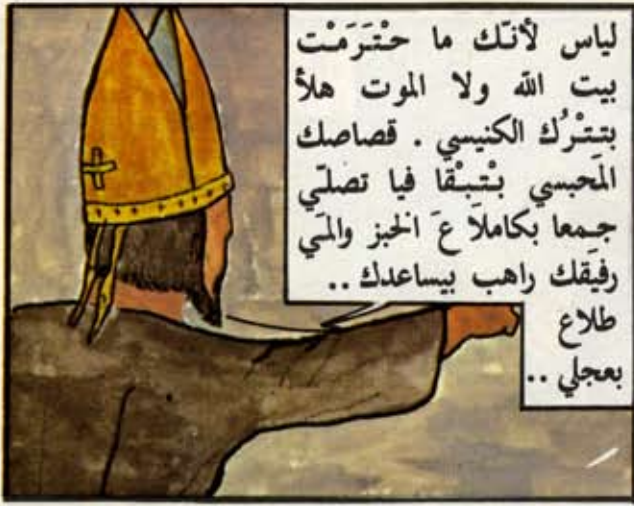 لياس لأنّك ما حـْتَرَمـْت
بيت الله ولا الموت هلأ
بتـِتـْرُك الكنيسي . قصاصك
المَحبسي بـْتـِبـْقا فيا تصلّي
جـمعا بكاملاَ عَ الخبز والمَي
رفيقك راهب بيساعدك ..
طلاع
بعجلي ..